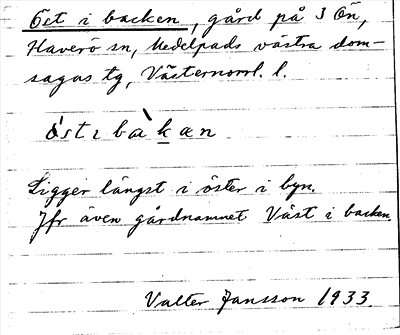 Öst i backen, gård på 3 Ön,
Haverö sn, Medelpads västra dom-
sagas tg, Västernorrl. l.
östɩbakan
Ligger längst i öster i byn.
Jfr även gårdnamnet Väst i backen.
Valter Jansson 1933.